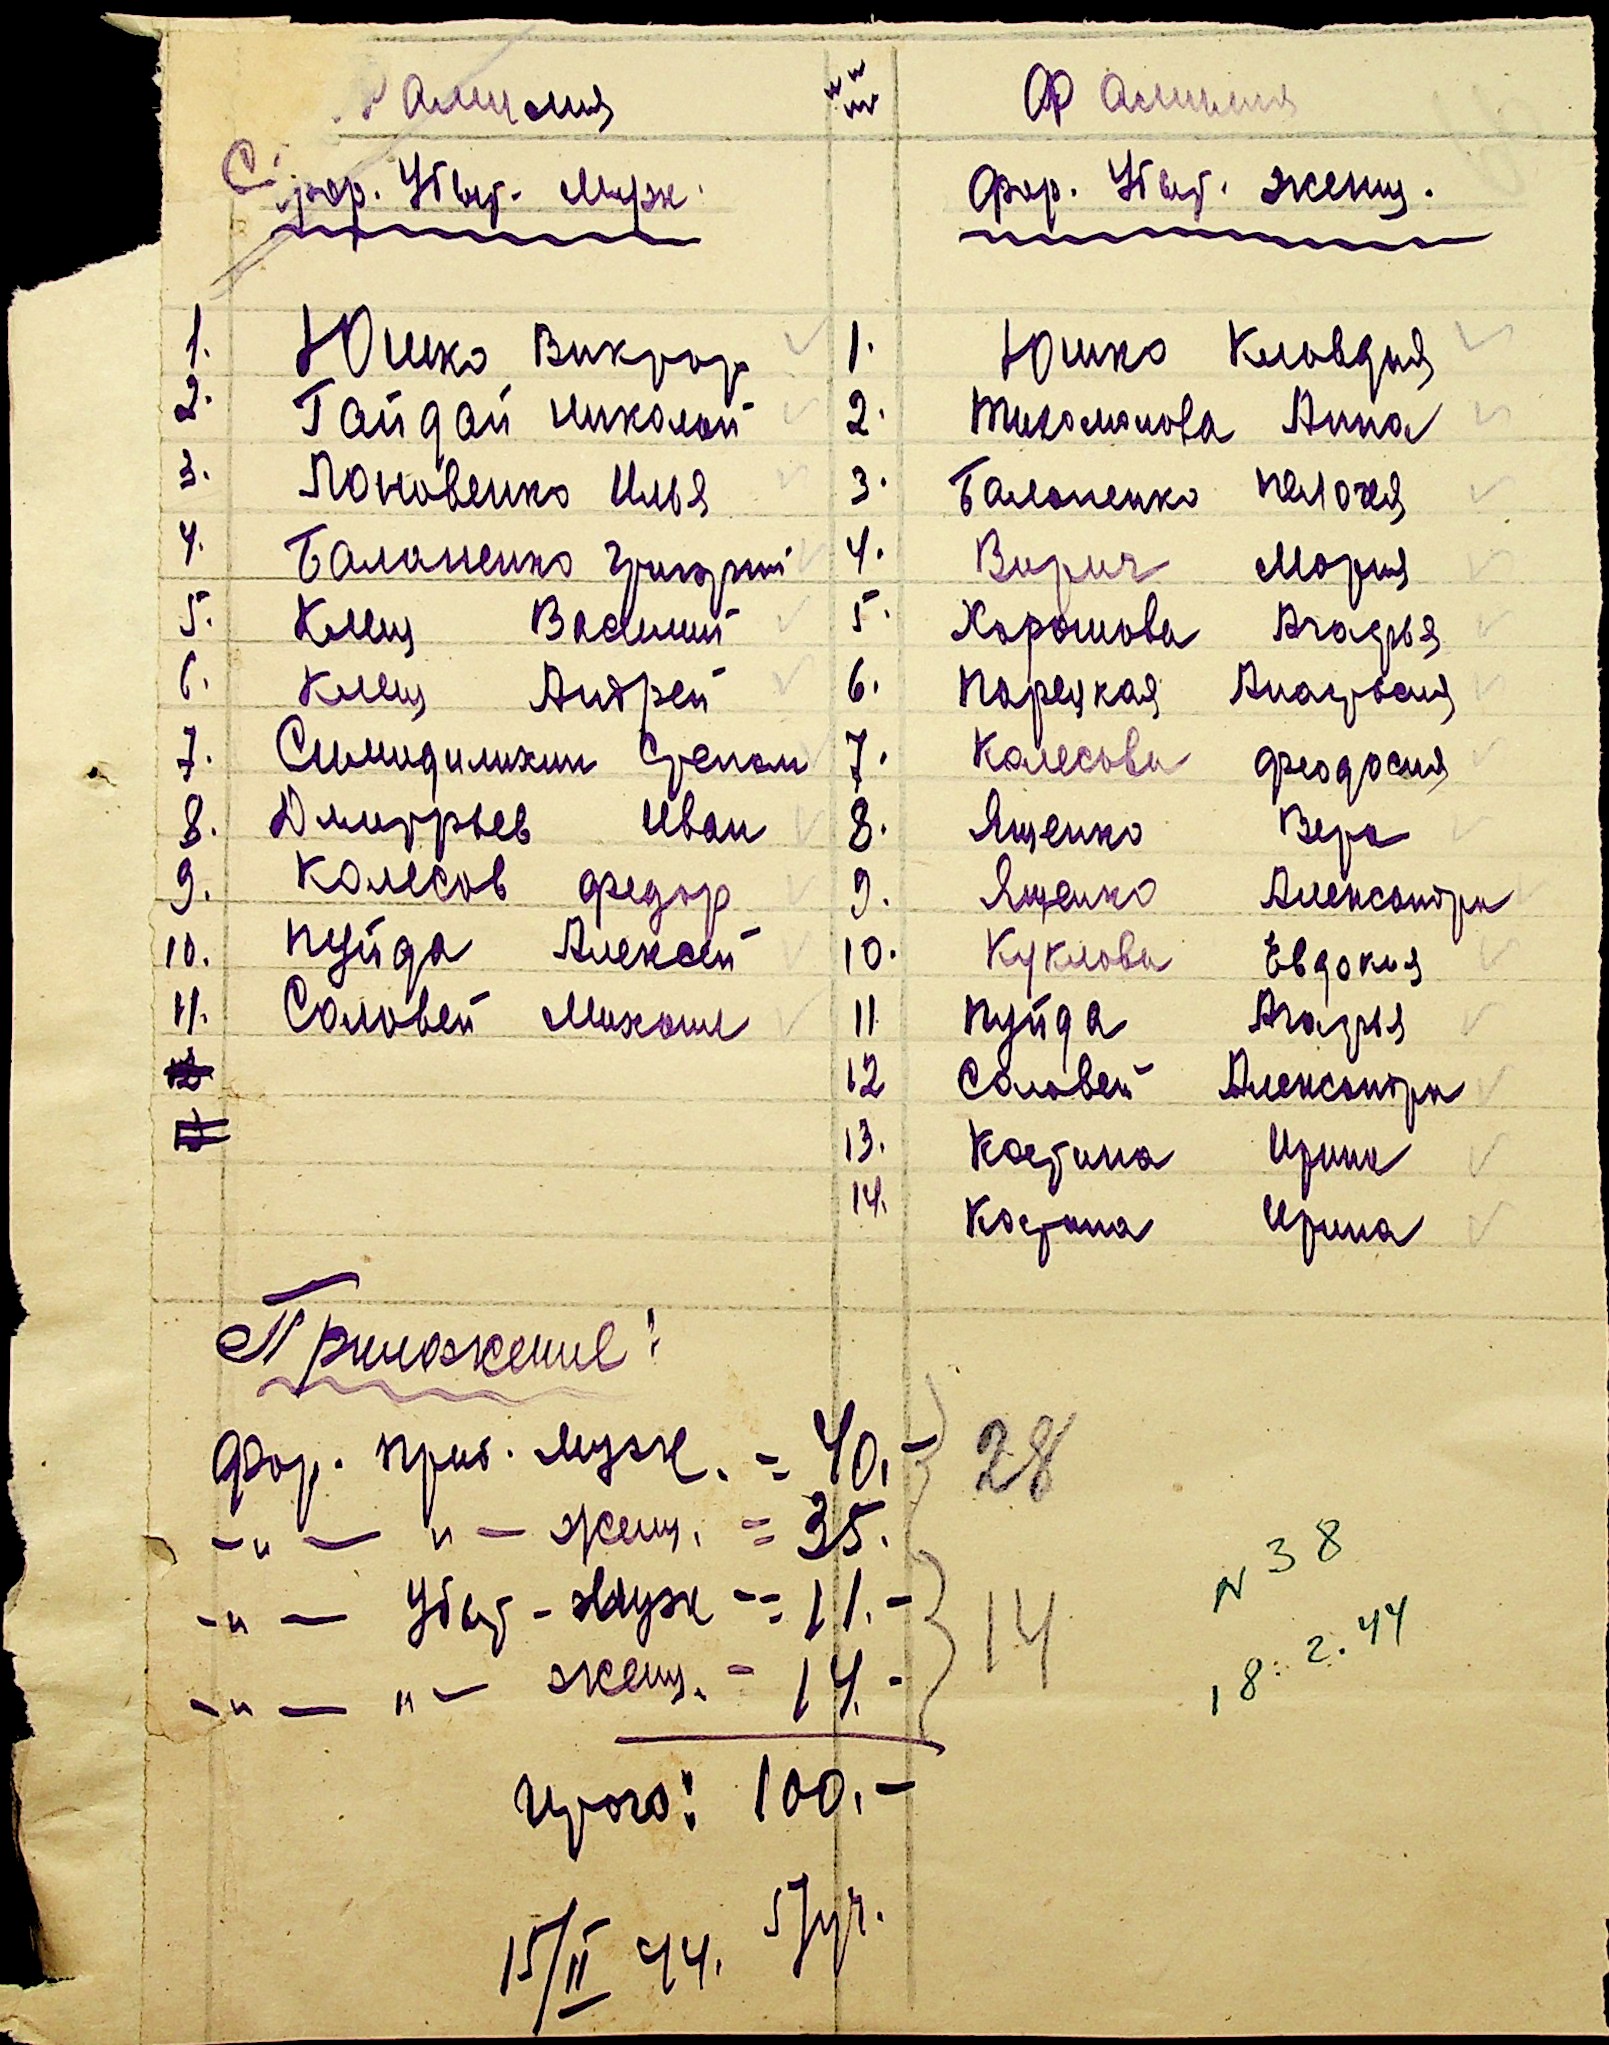 Фамилия №№ Фамилия
фор. Убыт. муж. фор. Убыт. женщ.
1. Юшко Виктор 1. Юшко Клавдия
2. Гайдай Николай 2. Анна
3. Пановенко Илья 3. Балапенко Пелагея
4. Балапенко Григорий 4. Вирич Мария
5. Клещ Василий 5. Хорошова Агафья
6. Клещ Андрей 6. Порецкая Анастасия
7. Степан 7. Колесова Феодосия
8. Дмитрьев Иван 8. Ященко Вера
9. Колесов Федор 9. Ященко Александра
10. Пуйда Алексей 10. Куклова Евдокия
11. Соловей Михаил 11 Пуйда Агафья
12 Соловей Александра
13. Костина Ирина
14. Костина Ирина
Приложение:
Фор. приб. муж. = 40.- 28
-"- "- женщ. = 35.
-"- Убыт - муж -= 11.- 14
-"- "- женщ. = 14.-
Итого: 100.-
N 38
18.2.44
15/II 44. 5/уч.